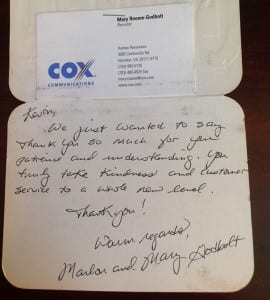 Mary Roome-Godbolt
Recruiter
Human Resources
Herndon, VA
www.cox.com
COX
COMMUNICATIONS
Kevin,
We just wanted to say
Thank you so much for your
patience and understanding. You
truly take kindness and customer
service to a whole new level.
Thank you!
Warm regards,
Marlon and Mary Godbolt